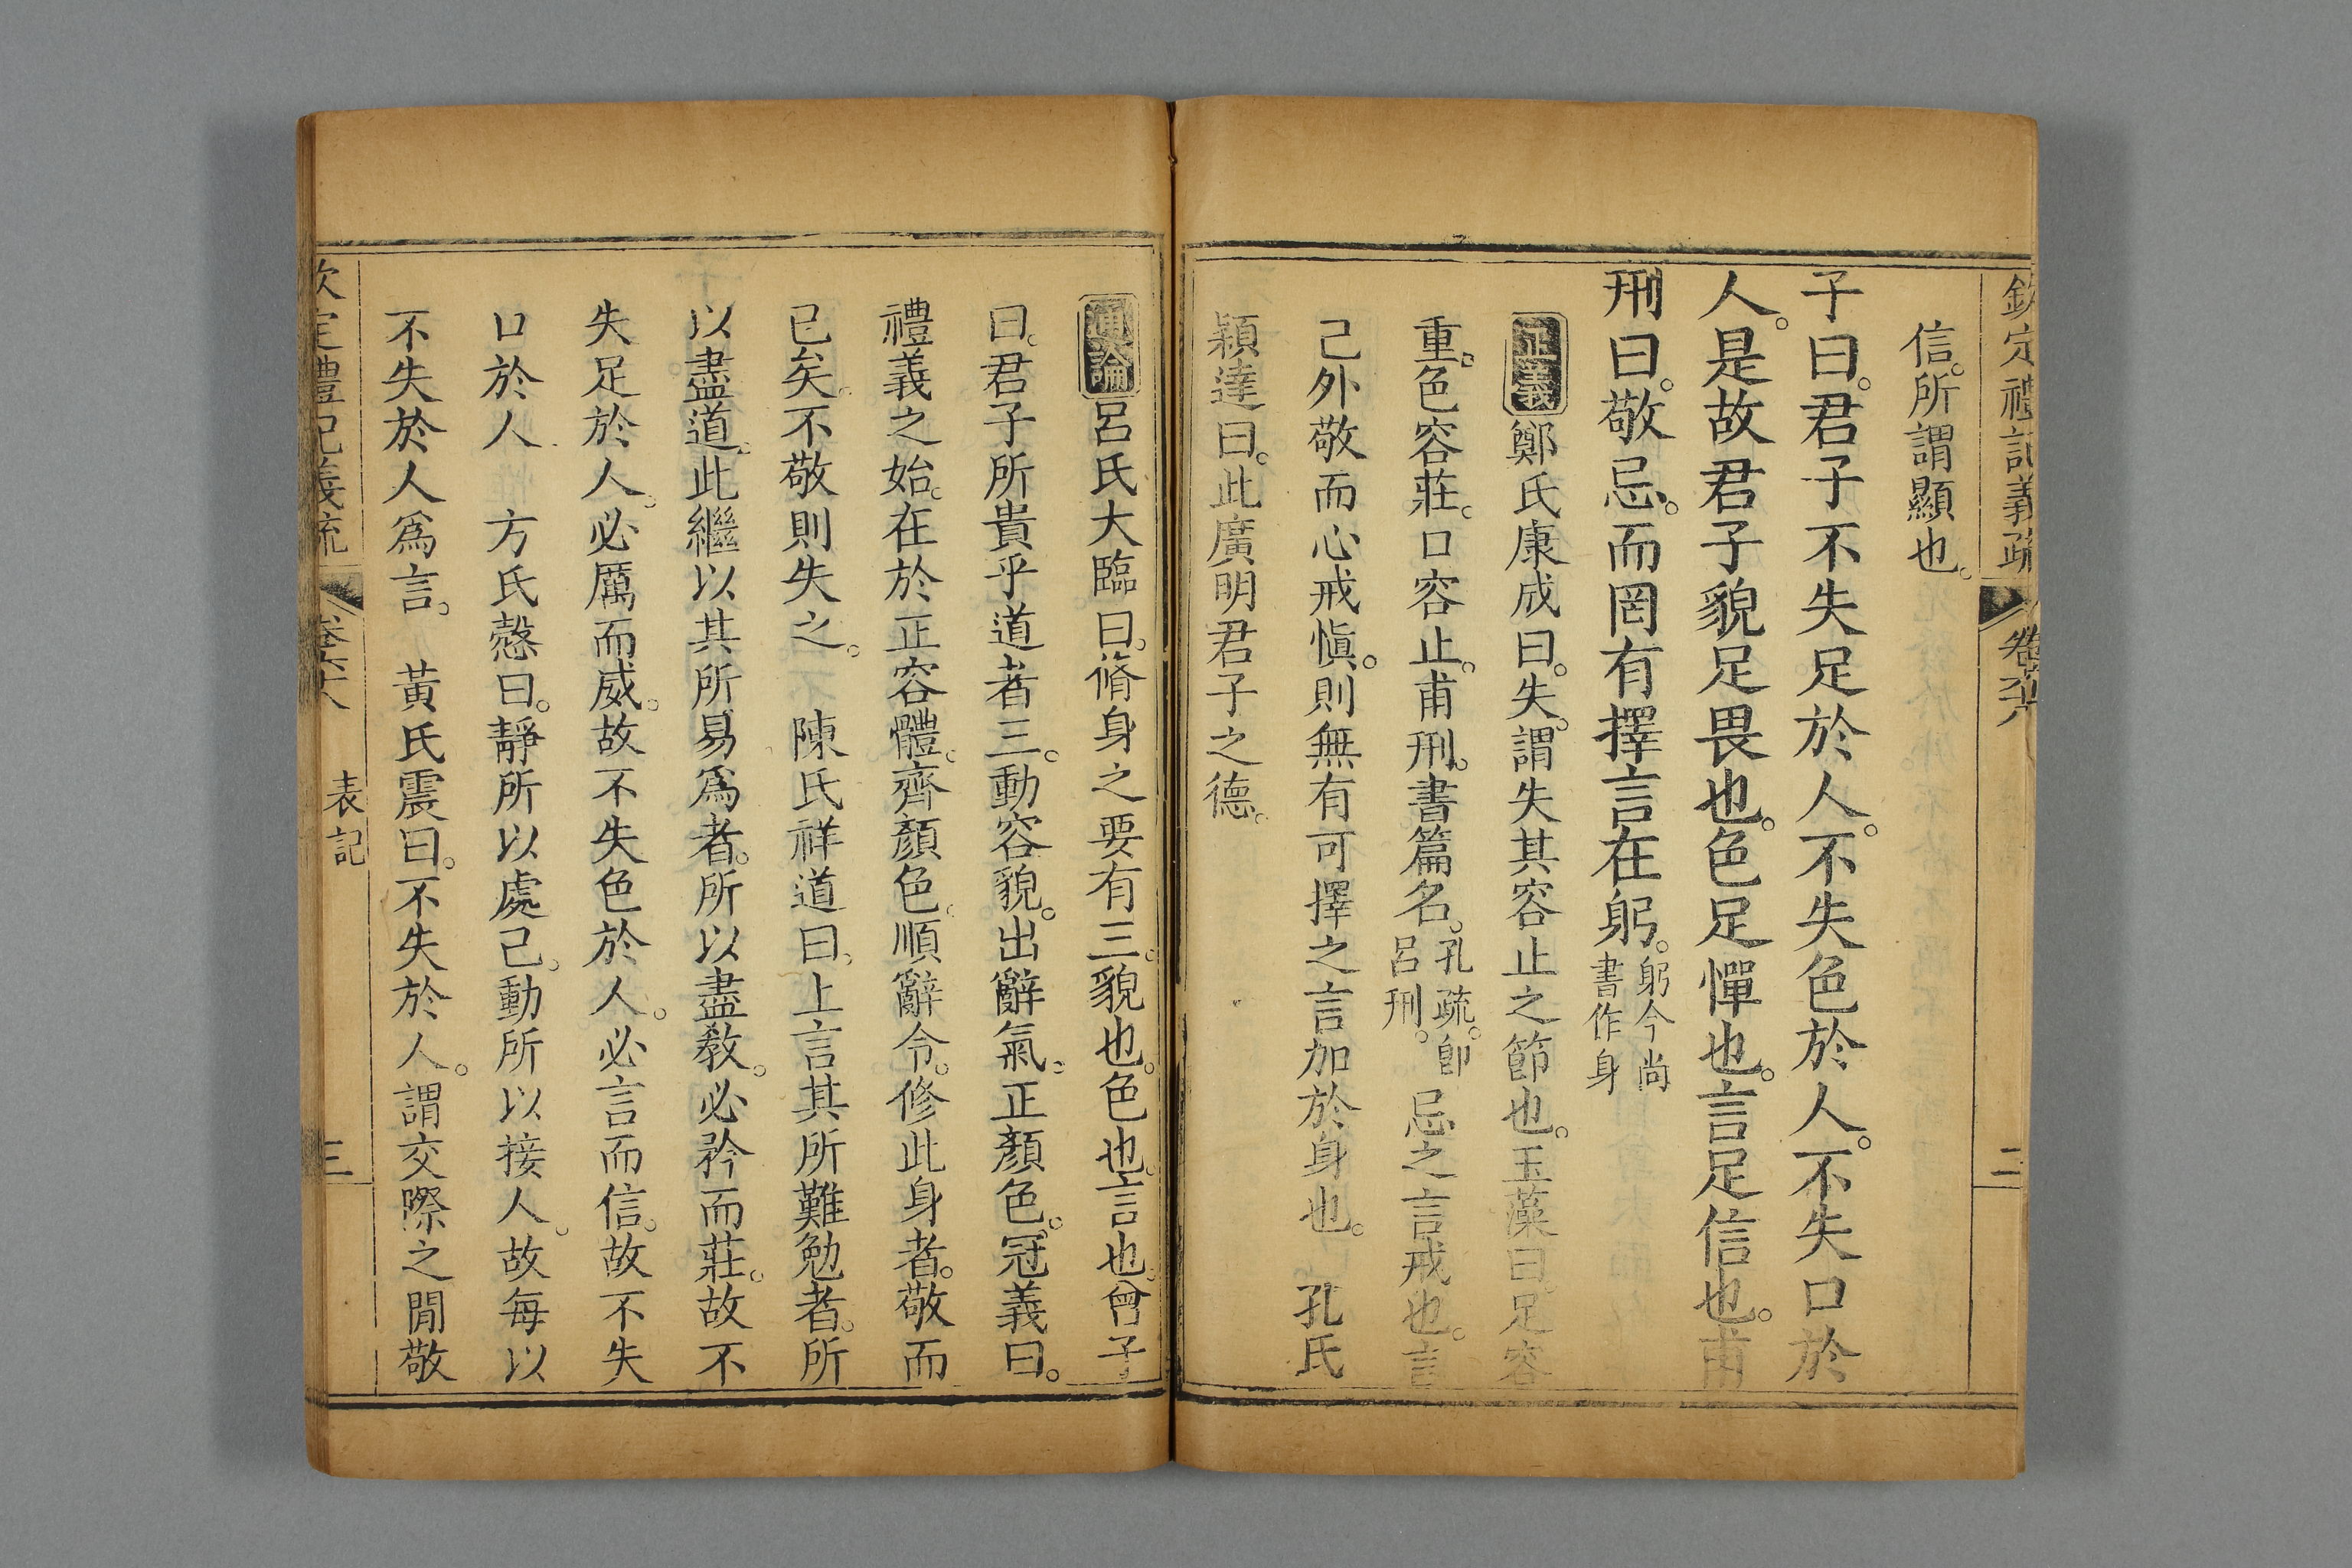 欽定禮記義疏 卷六十八 二
信。所謂顯也。
子曰。君子不失足於人。不失色於人。不失口於
人。是故君子貌足畏也。色足憚也。言足信也。甫
刑曰。敬忌。而罔有擇言在躬。躬今尚書作身
正義 鄭氏康成曰。失。謂失其容止之節也。玉藻曰。足容
重。色容莊。口容止。甫刑。書篇名。孔疏。卽呂刑。忌之言戒也。言
己外敬而心戒愼。則無有可擇之言加於身也。 孔氏
穎達曰。此廣明君子之德。
通論 呂氏大臨曰。脩身之要有三。貌也。色也。言也。曾子
曰。君子所貴乎道者三。動容貌。出辭氣。正顏色。冠義曰。
禮義之始。在於正容體。齊顏色。順辭令。修此身者。敬而
已矣。不敬則失之。 陳氏祥道曰。上言其所難勉者。所
以盡道。此繼以其所易爲者。所以盡敎。必矜而莊。故不
失足於人。必厲而威。故不失色於人。必言而信。故不失
口於人 方氏慤曰。靜所以處己。動所以接人。故每以
不失於人爲言。 黃氏震曰。不失於人。謂交際之閒敬
欽定禮記義疏 卷六十八 表記 三